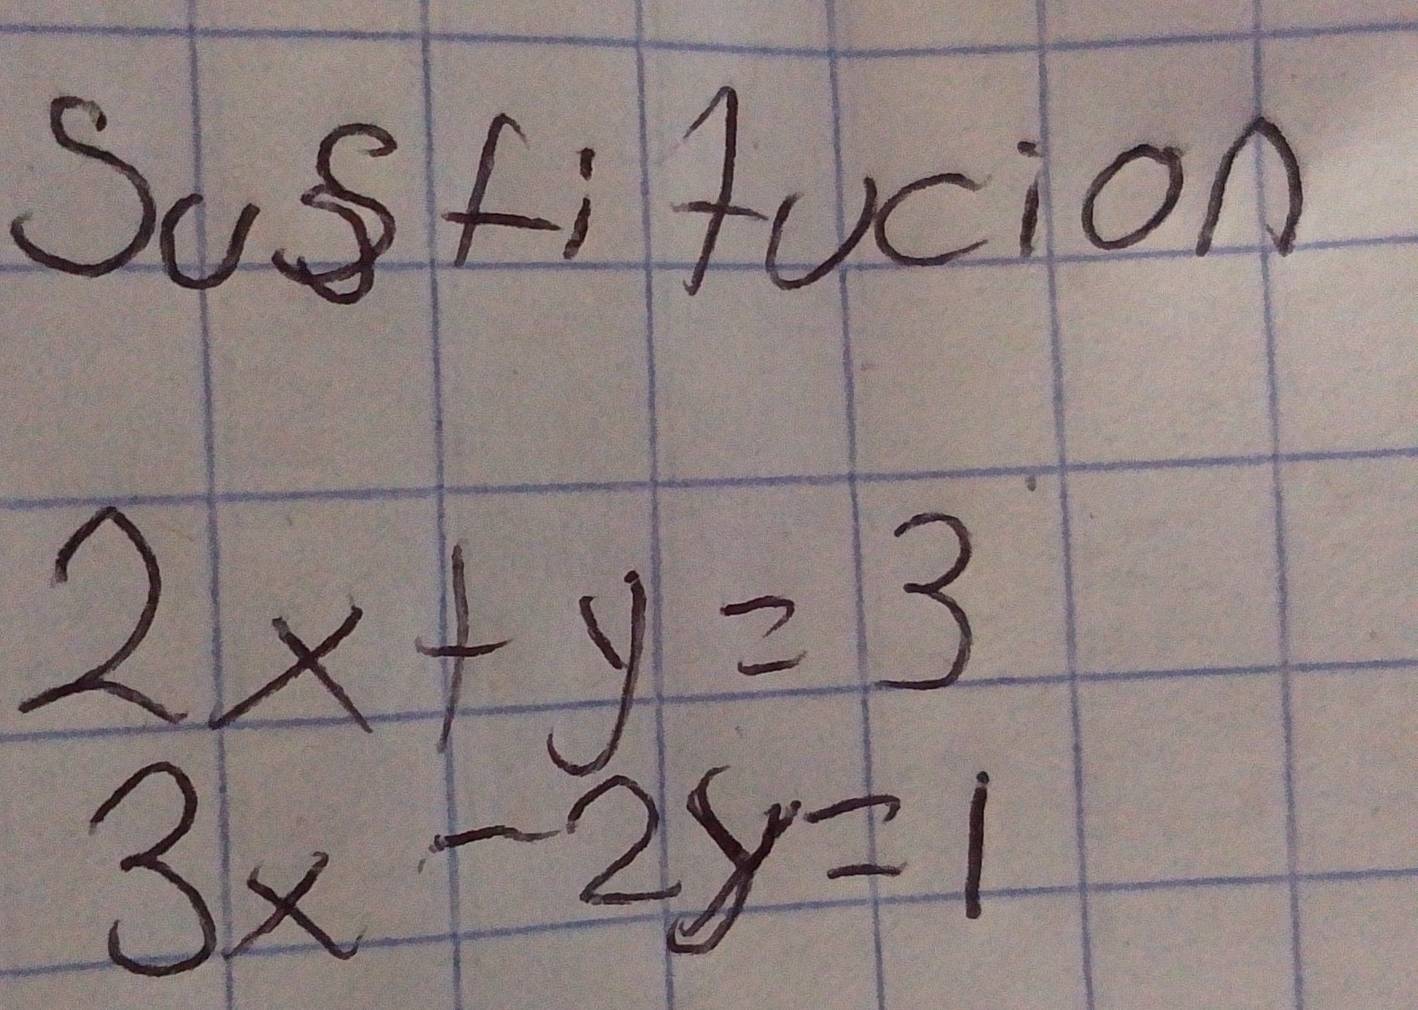 Sustitucion
2x + y = 3
3x - 2y = 1